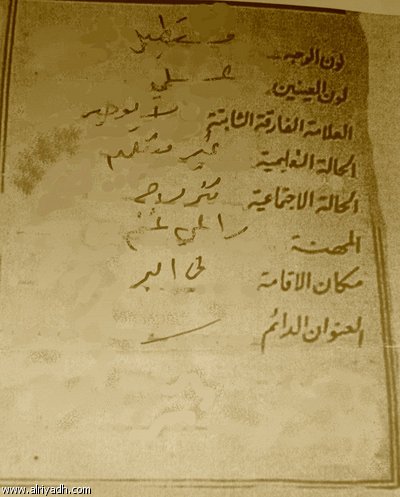 لون الوجه مستطيل
لون العينين عسلي
العلامة الفارقة الثابتة لا يوجد
الحالة التعليمية غير متعلم
الحالة الاجتماعية متزوج
المهنة راعي غنم
مكان الاقامة في البر
العنوان الدائم
www.alriyadh.com